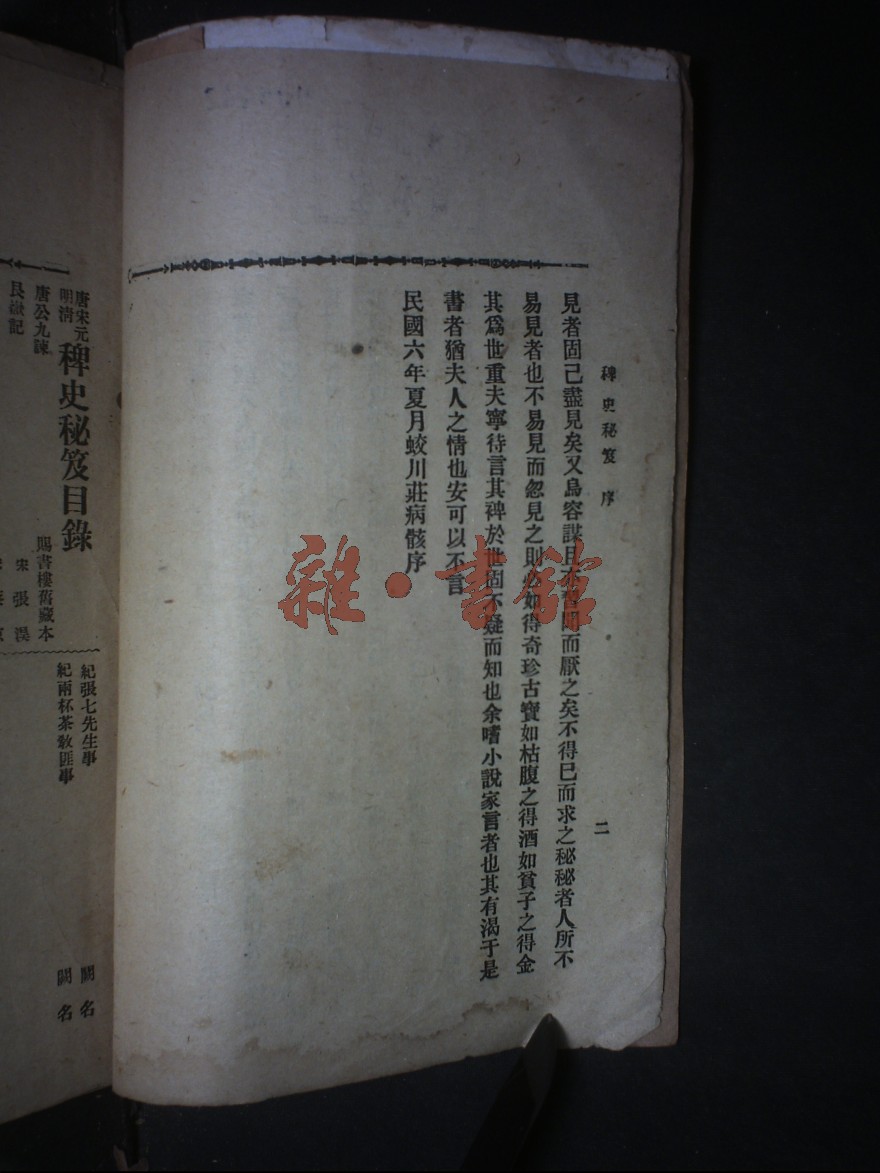 稗史秘笈 序
二
見者固己盡見矣又烏容謀且不暫聞而厭之矣不得已而求之秘秘者人所不
易見者也不易見而忽見之則必如得奇珍古寶如枯腹之得酒如貧子之得金
其爲世重夫寧待言其裨於世固不疑而知也余嗜小說家言者也其有渴于是
書者猶夫人之情也安可以不言
民國六年夏月蛟川莊病骸序
雜·書館
唐宋元明清 稗史秘笈目錄
賜書樓舊藏本
唐公九諫
宋 張淏
艮嶽記
紀張七先生事
闕名
紀兩杯茶教匪事
闕名